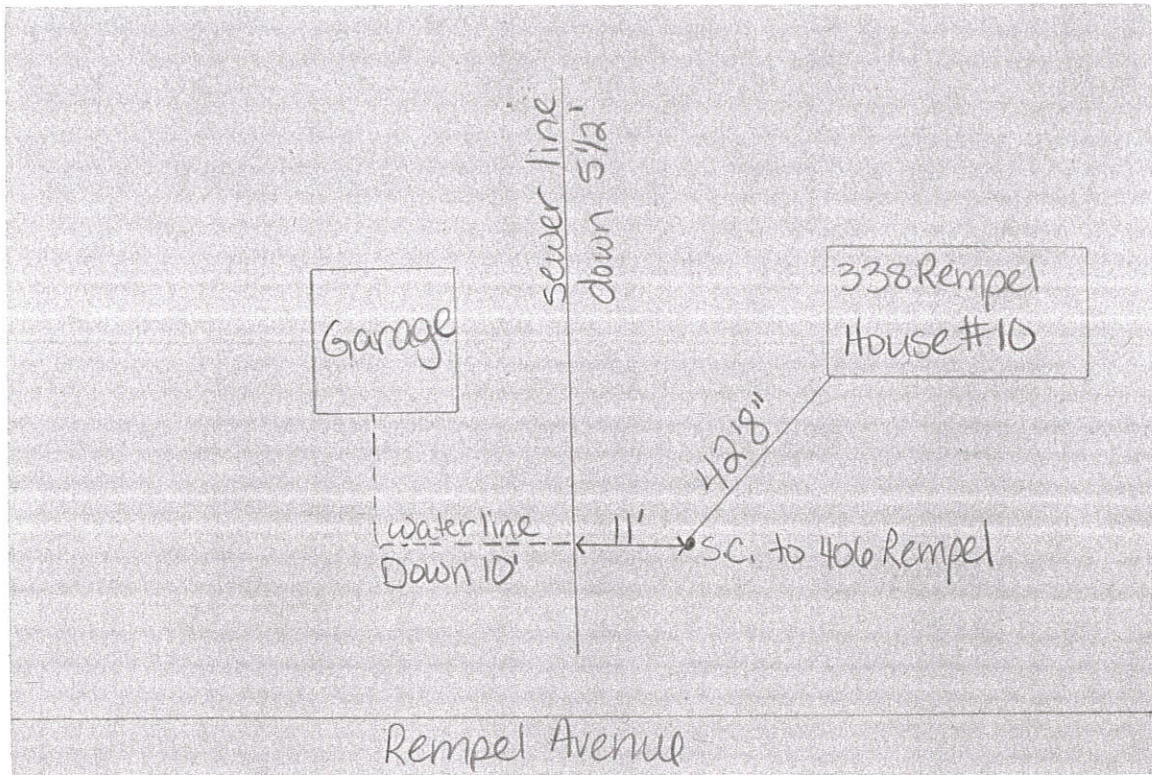 sewer line
down 5 1/2'
338 Rempel
House #10
Garage
42'8"
water line
Down 10'
11'
S.C. to 406 Rempel
Rempel Avenue